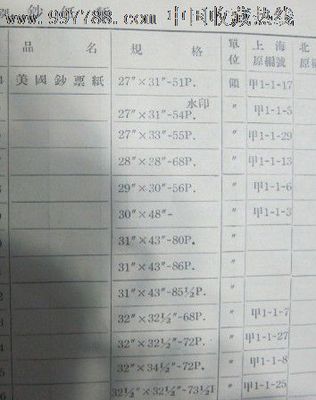 www.997788.com 中国收藏热线
鈔紙類
品 名 規 格 單位 上海原編號 北
美國鈔票紙 27"×31"-51P. 領 甲1-1-17
水印
27"×31"-54P. " 甲1-1-5
27"×33"-55P. " 甲1-1-29
28"×38"-68P. " 甲1-1-13
29"×30"-56P. " 甲1-1-6
30"×48"- " 甲1-1-3
31"×43"-80P. "
31"×43"-86P. "
31"×43"-85½P. "
32"×32½"-68P. " 甲1-1-7
32"×32½"-72P. " 甲1-1-27
32"×34½"-72P. " 甲1-1-8
32½"×32½"-73½P " 甲1-1-25